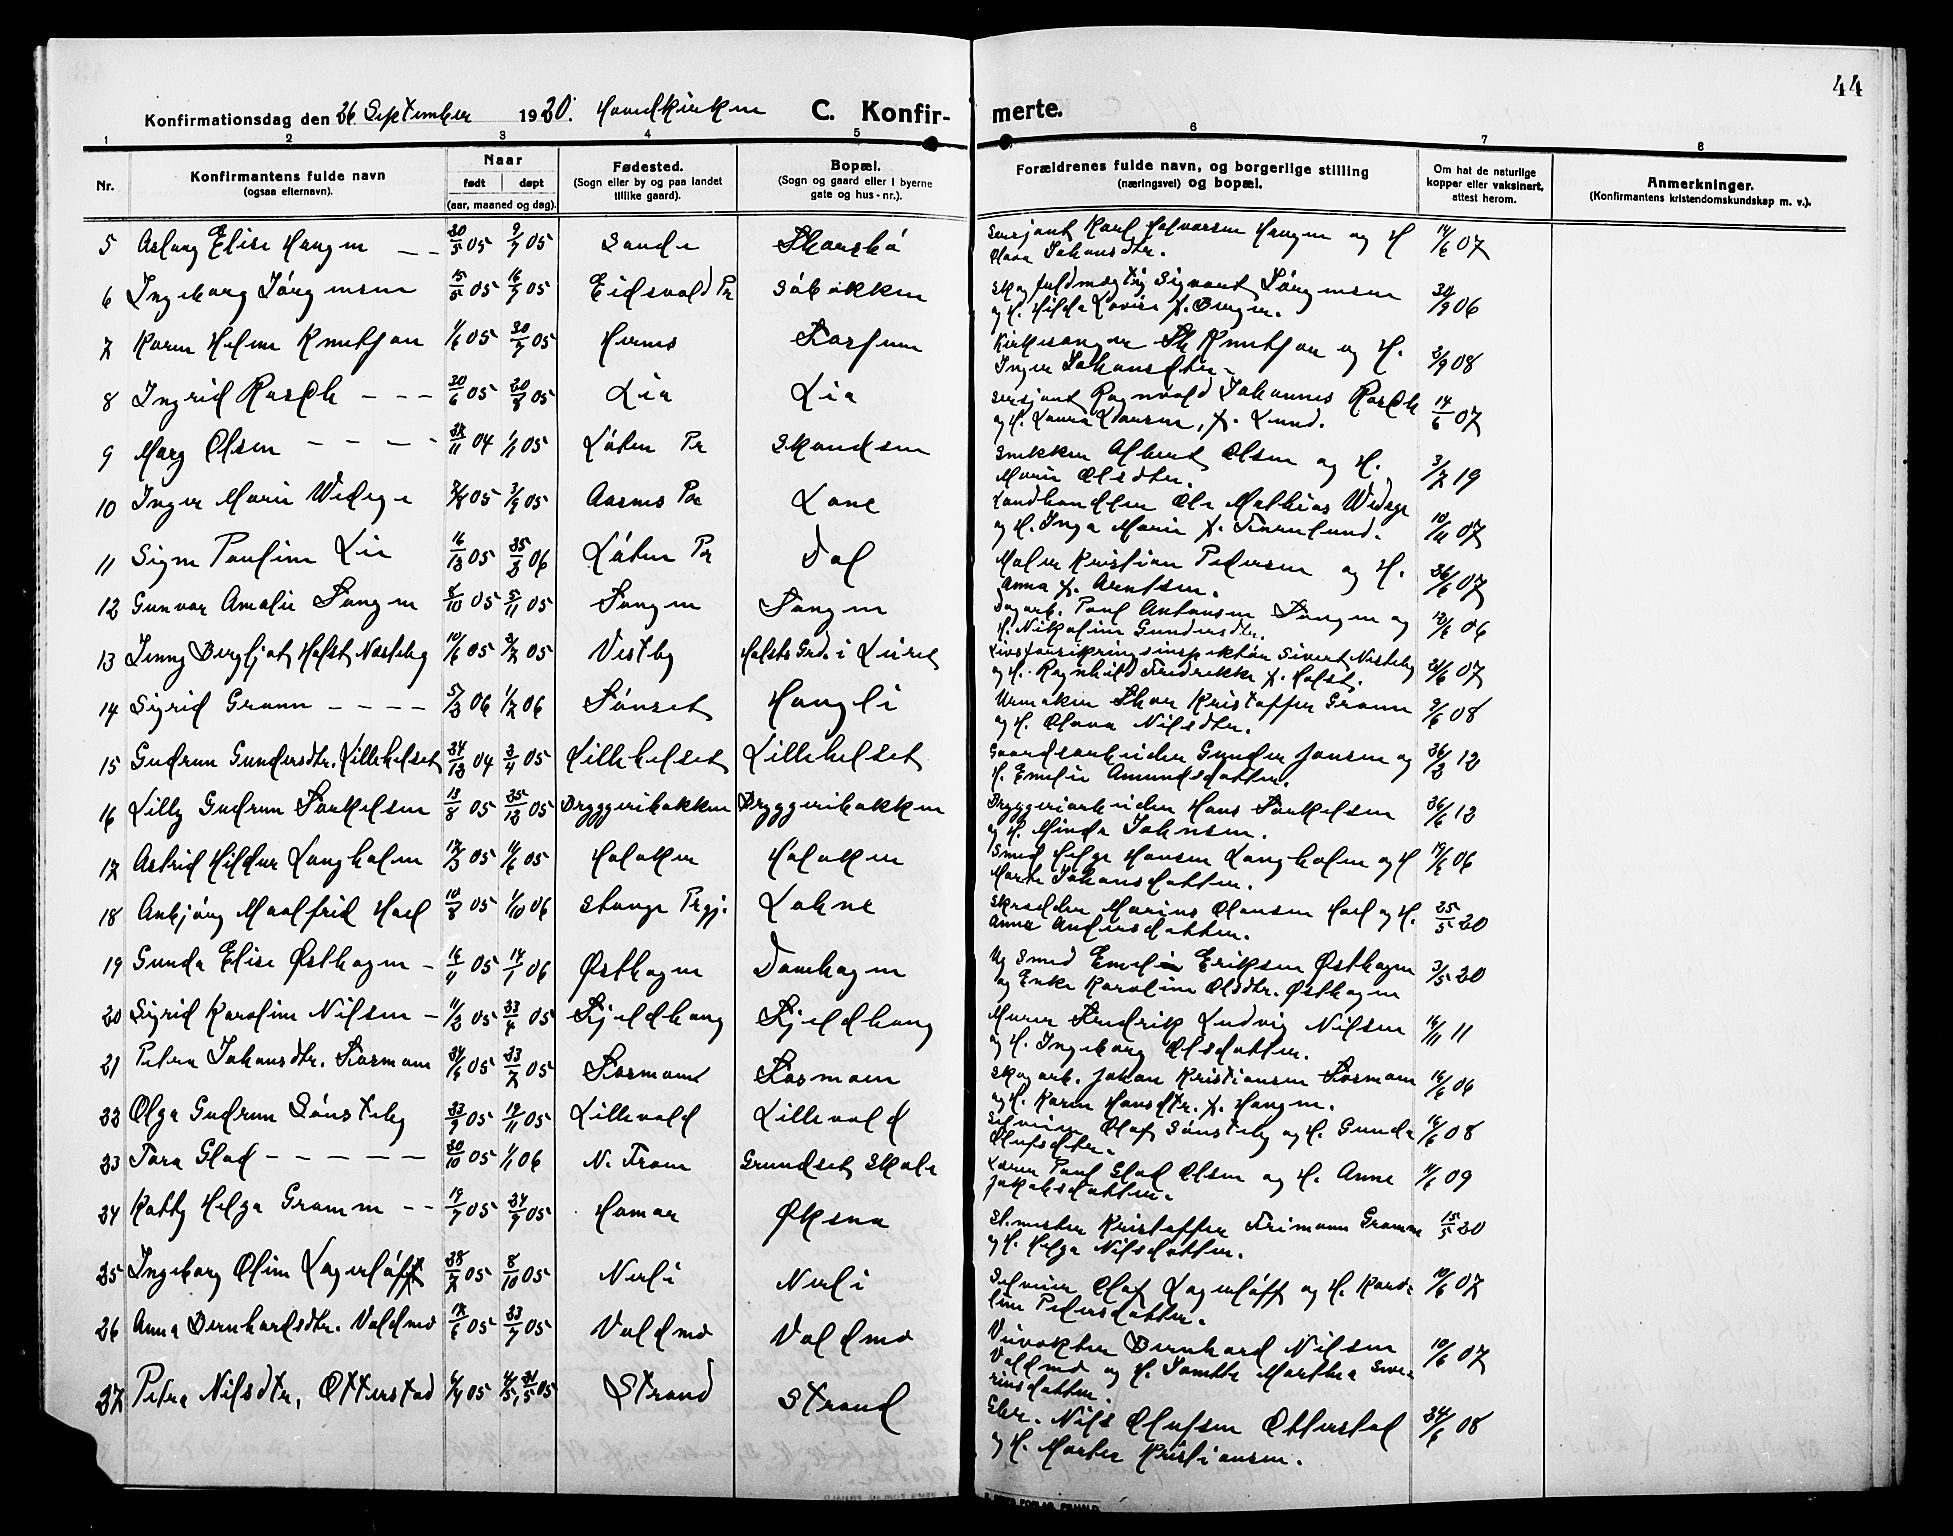 44
Konfirmationsdag den 26 September 1920. Hovedkirken C. Konfirmerte.
1 2 3 4 5 6 7 8
Nr. Konfirmantens fulde navn (ogsaa efternavn). Naar født døpt (aar, maaned og dag). Fødested. (Sogn eller by og paa landet tillike gaard). Bopæl. (Sogn og gaard eller i byerne gate og hus-nr.). Forældrenes fulde navn, og borgerlige stilling (næringsvei) og bopæl. Om hat de naturlige kopper eller vaksinert, attest herom. Anmerkninger. (Konfirmantens kristendomskundskap m. v.).
5 Aslaug Elise Haugen 20/5 05 9/7 05 Sande Skarsbö Sersjant Karl Halvorsen Haugen og H. 14/6 07
Johansdtr.
6 Ingeborg Jörgensen 15/5 05 16/7 05 Eidsvold Pr Söbakken Skogfuldmægtig Sigvart Jörgensen
og H. Hilda Lovise f. Berger. 20/9 06
7 Karen Helene Knutsen 1/6 05 30/7 05 Hernes Kirkesanger Knutsen og H.
Inger Johansdtr. 3/9 08
8 Ingrid Rasch 20/6 05 20/8 05 Lia Lia Sersjant Ragnvald Johannes Rasch
og H. Laura Klausen, f. Lund. 14/6 07
9 Mary Olsen 04 1/1 05 Löten Pr Skandsen Snekker Albert Olsen og H.
Marie Olsdtr. 3/7 19
10 Inger Marie Wedege 05 3/9 05 Aasnes Pr Lone Landhandler Ole Mathias Wedege
og H. Inga Marie f. 10/11 07
11 Signe Pauline Lie 16/12 05 25/3 06 Löten Pr Dal Maler Kristian Pedersen og H.
Anna f. Arntsen. 26/6 07
12 Gunvor Amalie Tangen 8/10 05 5/11 05 Tangen Tangen Dagarb. Paul Antonsen Tangen og
H. Nikoline Gundersdtr. 12/6 06
13 Jenny Bergljot Holst Næsteby 10/6 05 05 Vestby Holsts Grd. i Leiret Livsforsikringsinspektör Sivert Næsteby
og H. Ragnhild Fredrikke f. Holst. 21/6 07
14 Sigrid Gramm 5/3 06 1/7 06 Tönset Haugli Urmaker Thor Kristoffer Gramm
og H. Olava Nilsdtr. 9/6 08
15 Gudrun Gundersdtr. Lillehelset 24/12 04 2/4 05 Lillehelset Lillehelset Gaardsarbeider Gunder Jansen og
H. Emelie Amundsdatter. 26/3 12
16 Lilly Gudrun Torkelsen 13/8 05 25/12 05 Bryggeribakken Bryggeribakken Bryggeriarbeider Hans Torkelsen
og H. Minda Johnsen. 26/6 12
17 Astrid Hildur Langholm 17/3 05 11/6 05 Haloken Haloken Smed Helge Hansen Langholm og H.
Marte Johansdatter. 06
18 Anbjörg Maalfrid Hoel 10/8 05 1/10 06 Stange Prgj. Skrædder Marius Olausen Hoel og H.
Anna Andersdatter. 25/5 20
19 Gunda Elise Østhagen 16/11 05 14/1 06 Østhagen Damhagen Ug Smed Emil Eriksen Østhagen
og Enke Karoline Olsdtr. Østhagen 3/5 20
20 Sigrid Karoline Nilsen 11/2 05 23/4 05 Kjeldhaug Kjeldhaug Murer Fredrik Ludvig Nilsen
og H. Ingeborg Olsdatter. 16/11 11
21 Petra Johansdtr. Tosmoen 05 23/7 05 Tosmoen Tosmoen Skogarb. Johan Kristiansen Tosmoen
og H. Karen Hansdtr. f. Haugen. 16/6 06
22 Olga Gudrun Sönsteby 23/9 05 19/11 05 Lillevold Lillevold Selveier Olaf Sönsteby og H. Gunda
Olufsdtr. 16/6 08
23 Tora Glad 20/10 05 1/1 06 N. Fron Grundset Skole Lærer Paul Glad Olsen og H. Anne
Jakobsdatter. 11/6 09
24 Katty Helga Gramm 19/7 05 24/9 05 Hamar Øksna St.mester Kristoffer Frimann Gramm
og H. Helga Nilsdatter. 15/5 20
25 Ingeborg Oline Lagerlöff 28/7 05 8/10 05 Nerli Nerli Selveier Olaf Lagerlöff og H. Karo-
line Pedersdatter. 10/6 07
26 Anna Bernhardsdtr. Voldmo 17/6 05 23/7 05 Voldmo Voldmo Veivokter Bernhard Nilsen
Voldmo og H. Martha Seve-
rinsdatter. 10/6 07
27 Petra Nilsdtr. Otterstad 4/4 05 05 Strand Strand Gbr. Nils Olufsen Otterstad
og H. Marter Kristiansen. 24/6 08